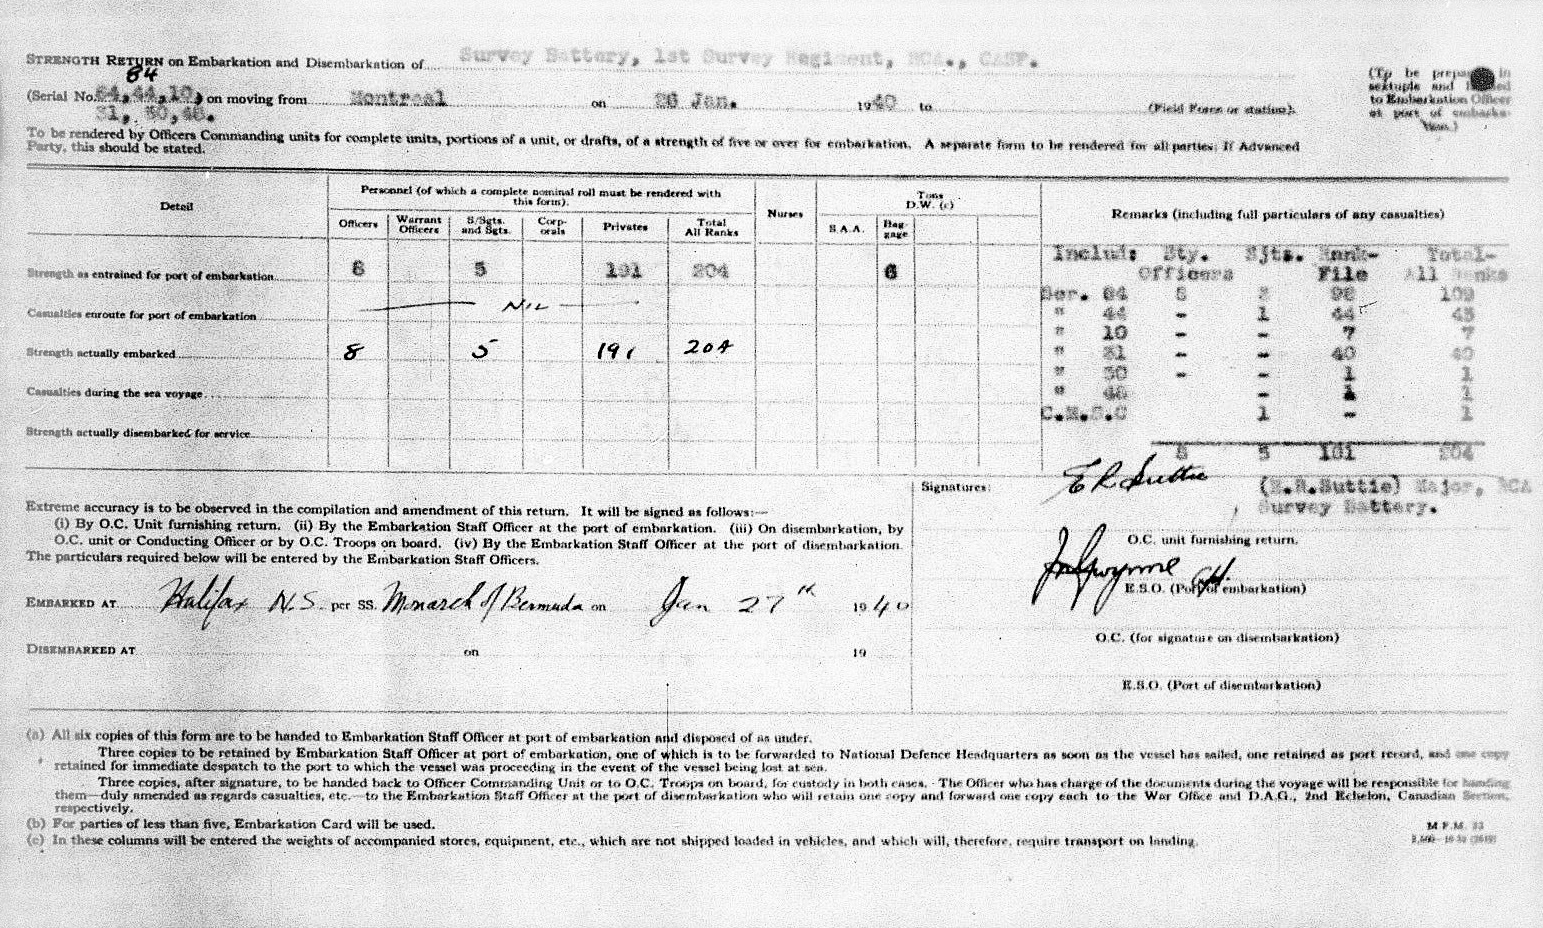 Survey Battery, 1st Survey Regiment, RCA., CASF.
STRENGTH RETURN on Embarkation and Disembarkation of
84
(Serial No. 64,44,10, on moving from Montreal on 26 Jan. 1940 to (Field Force or station).
31, 50,48.
(To be prepared in sextuple and handed to Embarkation Officer at port of embarkation.)
To be rendered by Officers Commanding units for complete units, portions of a unit, or drafts, of a strength of five or over for embarkation. A separate form to be rendered for all parties; If Advanced
Party, this should be stated.
Detail
Personnel (of which a complete nominal roll must be rendered with this form).
Officers
Warrant Officers
S/Sgts. and Sgts.
Corporals
Privates
Total All Ranks
Nurses
Tons D.W. (c)
S.A.A.
Baggage
Remarks (including full particulars of any casualties)
Strength as entrained for port of embarkation 8 5 191 204 6
Casualties enroute for port of embarkation Nil
Strength actually embarked 8 5 191 204
Casualties during the sea voyage
Strength actually disembarked for service
Includ: Bty. Sjts. Rank- Total-
Officers File All Ranks
Ser. 84 8 3 98 109
" 44 - 1 44 45
" 10 - - 7 7
" 31 - - 40 40
" 50 - - 1 1
" 48 - 1 1
C.M.S.C 1 - 1
8 5 191 204
Extreme accuracy is to be observed in the compilation and amendment of this return. It will be signed as follows:—
(i) By O.C. Unit furnishing return. (ii) By the Embarkation Staff Officer at the port of embarkation. (iii) On disembarkation, by
O.C. unit or Conducting Officer or by O.C. Troops on board. (iv) By the Embarkation Staff Officer at the port of disembarkation.
The particulars required below will be entered by the Embarkation Staff Officers.
EMBARKED AT Halifax N.S. per SS. Monarch of Bermuda on Jan 27th 1940
DISEMBARKED AT on 19
Signatures:
E R Suttie (E.R.Suttie) Major, RCA
Survey Battery.
O.C. unit furnishing return.
E.S.O. (Port of embarkation)
O.C. (for signature on disembarkation)
E.S.O. (Port of disembarkation)
(a) All six copies of this form are to be handed to Embarkation Staff Officer at port of embarkation and disposed of as under.
Three copies to be retained by Embarkation Staff Officer at port of embarkation, one of which is to be forwarded to National Defence Headquarters as soon as the vessel has sailed, one retained as port record, and one copy
retained for immediate despatch to the port to which the vessel was proceeding in the event of the vessel being lost at sea.
Three copies, after signature, to be handed back to Officer Commanding Unit or to O.C. Troops on board, for custody in both cases. The Officer who has charge of the documents during the voyage will be responsible for handing
them—duly amended as regards casualties, etc.—to the Embarkation Staff Officer at the port of disembarkation who will retain one copy and forward one copy each to the War Office and D.A.G., 2nd Echelon, Canadian Section,
respectively.
(b) For parties of less than five, Embarkation Card will be used.
(c) In these columns will be entered the weights of accompanied stores, equipment, etc., which are not shipped loaded in vehicles, and which will, therefore, require transport on landing.
M F.M. 33